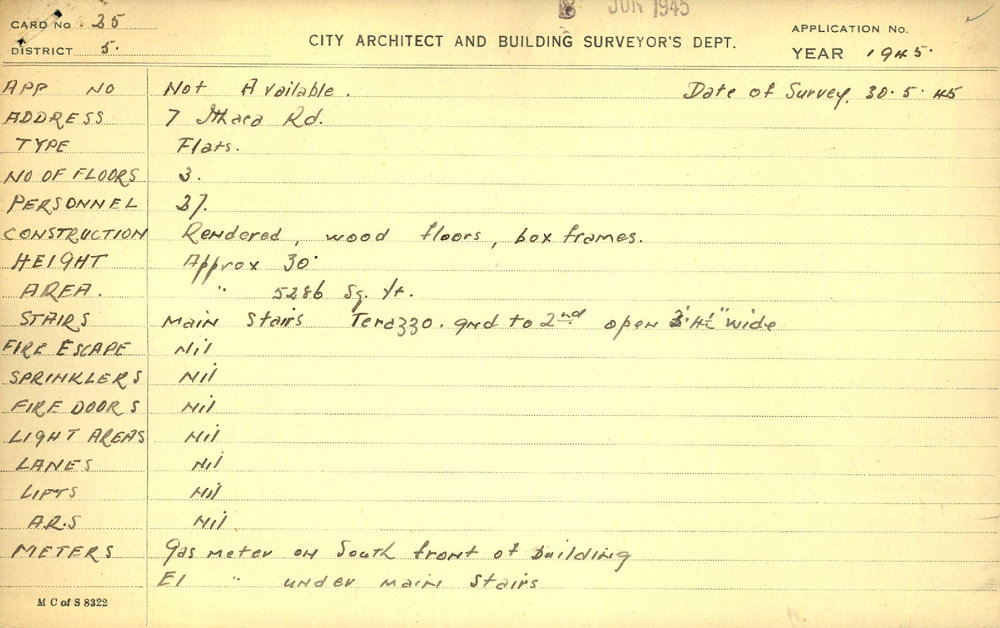 JUN 1945
CARD No. 25
APPLICATION No.
DISTRICT 5.
CITY ARCHITECT AND BUILDING SURVEYOR'S DEPT.
YEAR 1945.
APP NO Not Available. Date of Survey. 30.5.45
ADDRESS 7 Ithaca Rd.
TYPE Flats.
NO OF FLOORS 3.
PERSONNEL 27.
CONSTRUCTION Rendered, wood floors, box frames.
HEIGHT Approx 30'
AREA. " 5286 Sq. ft.
STAIRS Main Stairs Terazzo. gnd to 2nd open wide
FIRE ESCAPE Nil
SPRINKLERS Nil
FIRE DOORS Nil
LIGHT AREAS Nil
LANES Nil
LIFTS Nil
A.R.S Nil
METERS Gas meter on South front of building
El " under main stairs
M C of S 8322